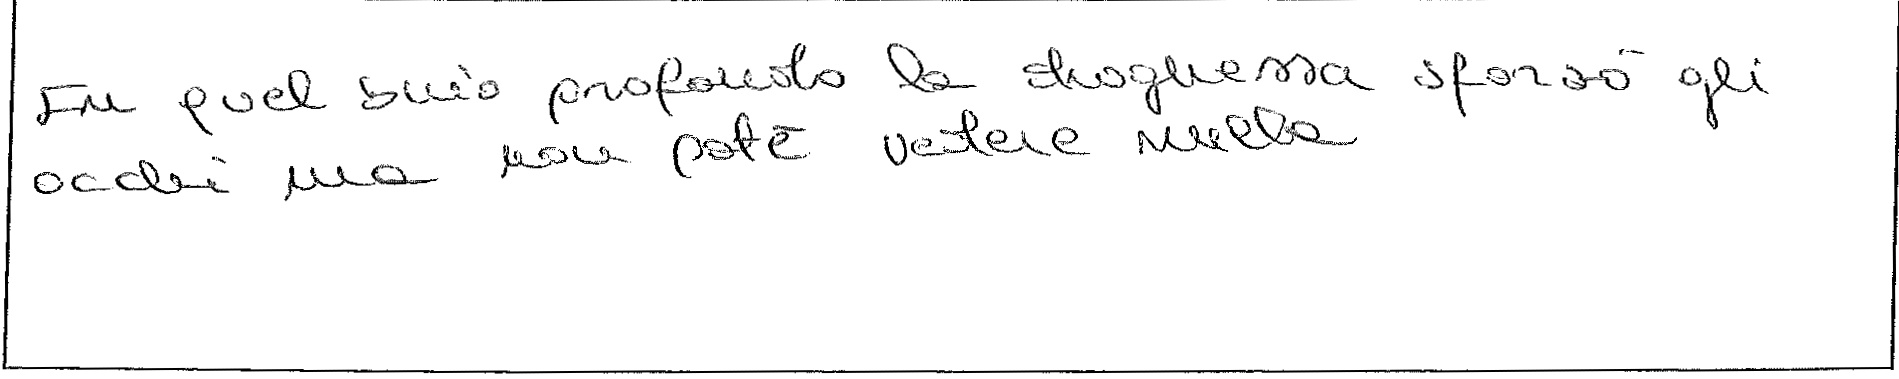 In quel buio profondo la draghessa sforzò gli
occhi ma non potē vedere nulla